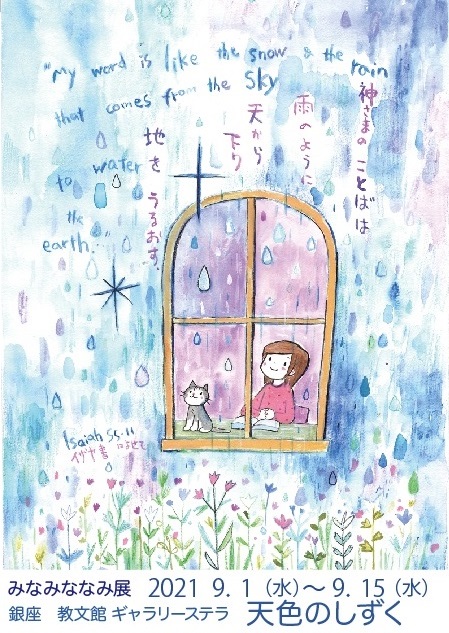 "My word is like the snow & the rain
that comes from the Sky
to water
the
earth..."
神さまの ことばは
雨のように
天から
下り
地を うるおす。
Isaiah 55.11
イザヤ書によせて
みなみななみ展 2021 9. 1（水）～ 9. 15（水）
銀座 教文館 ギャラリーステラ 天色のしずく